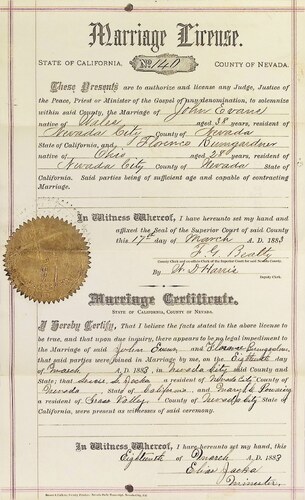 Marriage License.
STATE OF CALIFORNIA, No. 140 COUNTY OF NEVADA.
These Presents are to authorize and license any Judge, Justice of the
Peace, Priest or Minister of the Gospel of any denomination, to solemnize
within said County, the Marriage of John Evans
native of Wales aged 38 years, resident of
Nevada City County of Nevada
State of California, and Florence Bumgardner
native of Ohio aged 28 years, resident of
Nevada City County of Nevada State of
California. Said parties being of sufficient age and capable of contracting
Marriage.
In Witness Whereof, I have hereunto set my hand and
affixed the Seal of the Superior Court of said County
this 17th day of March A. D. 1883
F G Beatty
County Clerk and ex-officio Clerk of the Superior Court
By W D Harris
Deputy Clerk.
Marriage Certificate.
STATE OF CALIFORNIA, COUNTY OF NEVADA.
I Hereby Certify, That I believe the facts stated in the above license
to be true, and that upon due inquiry, there appears to be no legal impediment to
the Marriage of said John Evans and Florence Bumgardner
that said parties were Joined in Marriage by me, on the Eighteenth day of
March A. D. 1883, in Nevada City said County and
State; that L. Jacka a resident of Nevada City County of
Nevada, State of California, and Mary
a resident of Grass Valley, County of Nevada City State of
California, were present as witnesses of said ceremony.
In Witness Whereof, I have hereunto set my hand, this
Eighteenth of March A. D. 1883
Elias Jacka
Minister.